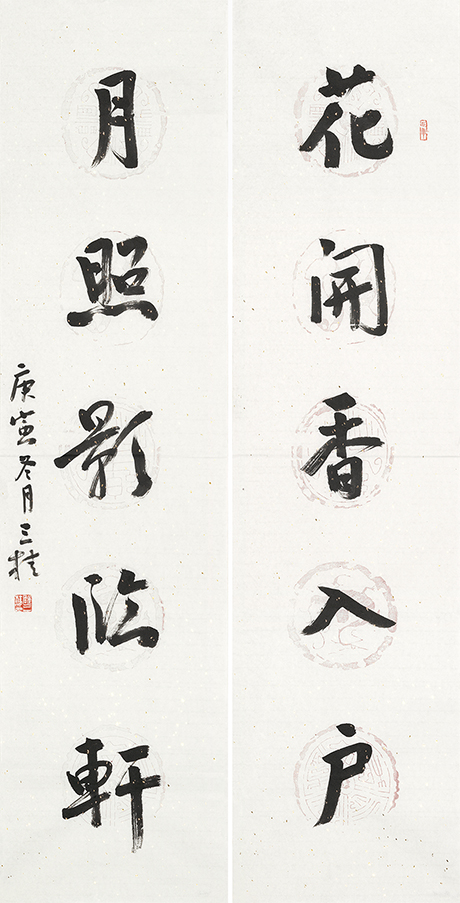 花開香入户
月照影臨軒
庚寅冬月三